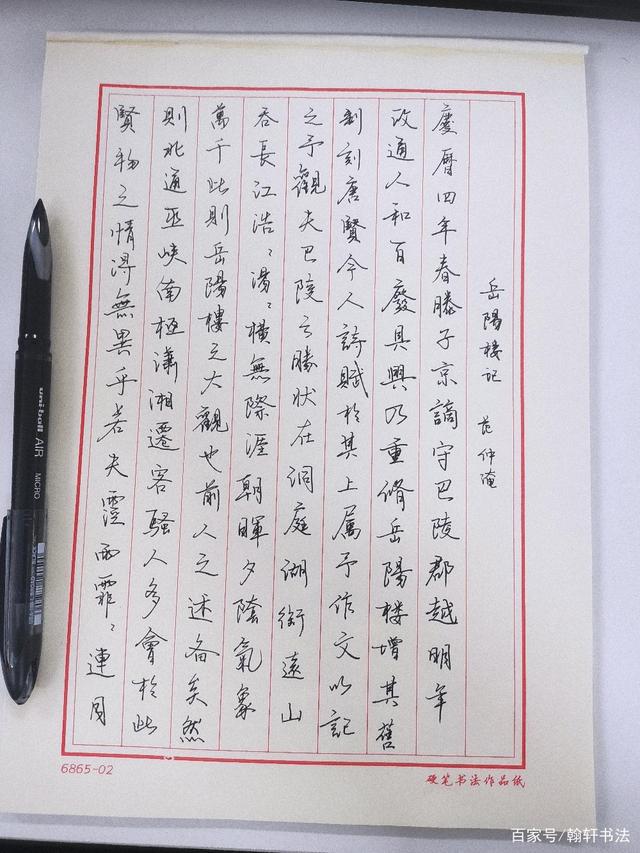 岳陽楼记 范仲淹
慶曆四年春滕子京謫守巴陵郡越明年
政通人和百廢具興乃重脩岳陽楼增其舊
制刻唐賢今人詩賦於其上属予作文以記
之予觀夫巴陵之勝状在洞庭湖銜遠山
吞長江浩〻湯〻橫無際涯朝暉夕陰氣象
萬千此則岳陽樓之大觀也前人之述备矣然
則北通巫峽南極瀟湘遷客騷人多會於此
賢物之情得無異乎若夫霪雨霏〻連月
6865-02
硬笔书法作品纸
uni-ball AIR MICRO
百家号/翰轩书法